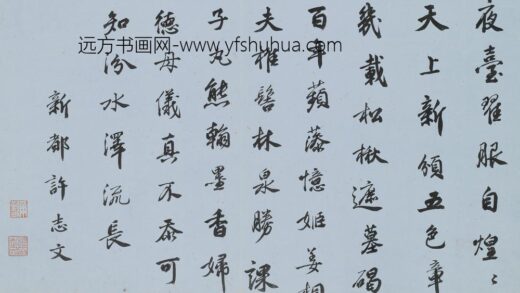 夜臺翟服自煌〻
天上新頒五色章
幾載松楸遮墓碣
百年蘋藻憶姬姜相
夫椎髻林泉勝課
子丸熊翰墨香婦
德母儀真不忝可
知汾水澤流長
新都許志文
远方书画网-www.yfshuhua.com